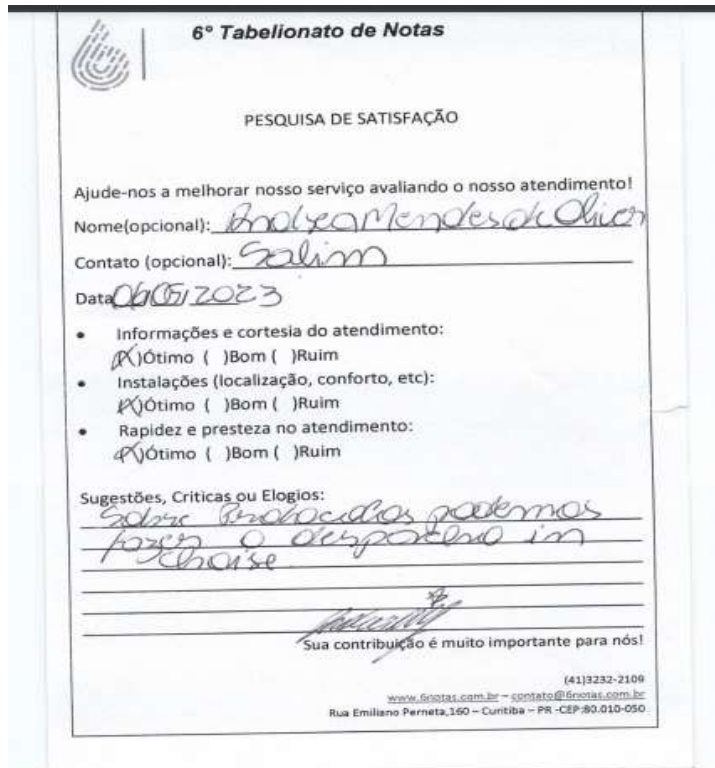 6º Tabelionato de Notas
PESQUISA DE SATISFAÇÃO
Ajude-nos a melhorar nosso serviço avaliando o nosso atendimento!
Nome(opcional): Mendes de
Contato (opcional): Salim
Data 06/05/2023
• Informações e cortesia do atendimento:
(X)Ótimo ( )Bom ( )Ruim
• Instalações (localização, conforto, etc):
(X)Ótimo ( )Bom ( )Ruim
• Rapidez e presteza no atendimento:
(X)Ótimo ( )Bom ( )Ruim
Sugestões, Criticas ou Elogios:
Sobre podemos
fazer o in
Sua contribuição é muito importante para nós!
(41)3232-2109
www.6notas.com.br – contato@6notas.com.br
Rua Emiliano Perneta,160 – Curitiba – PR -CEP:80.010-050